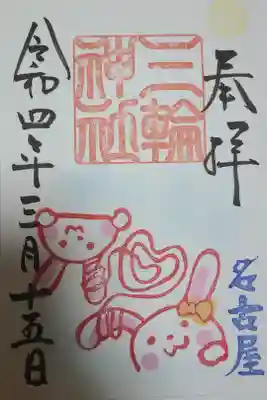 奉拝
三輪
神社
名古屋
令和四年三月十五日